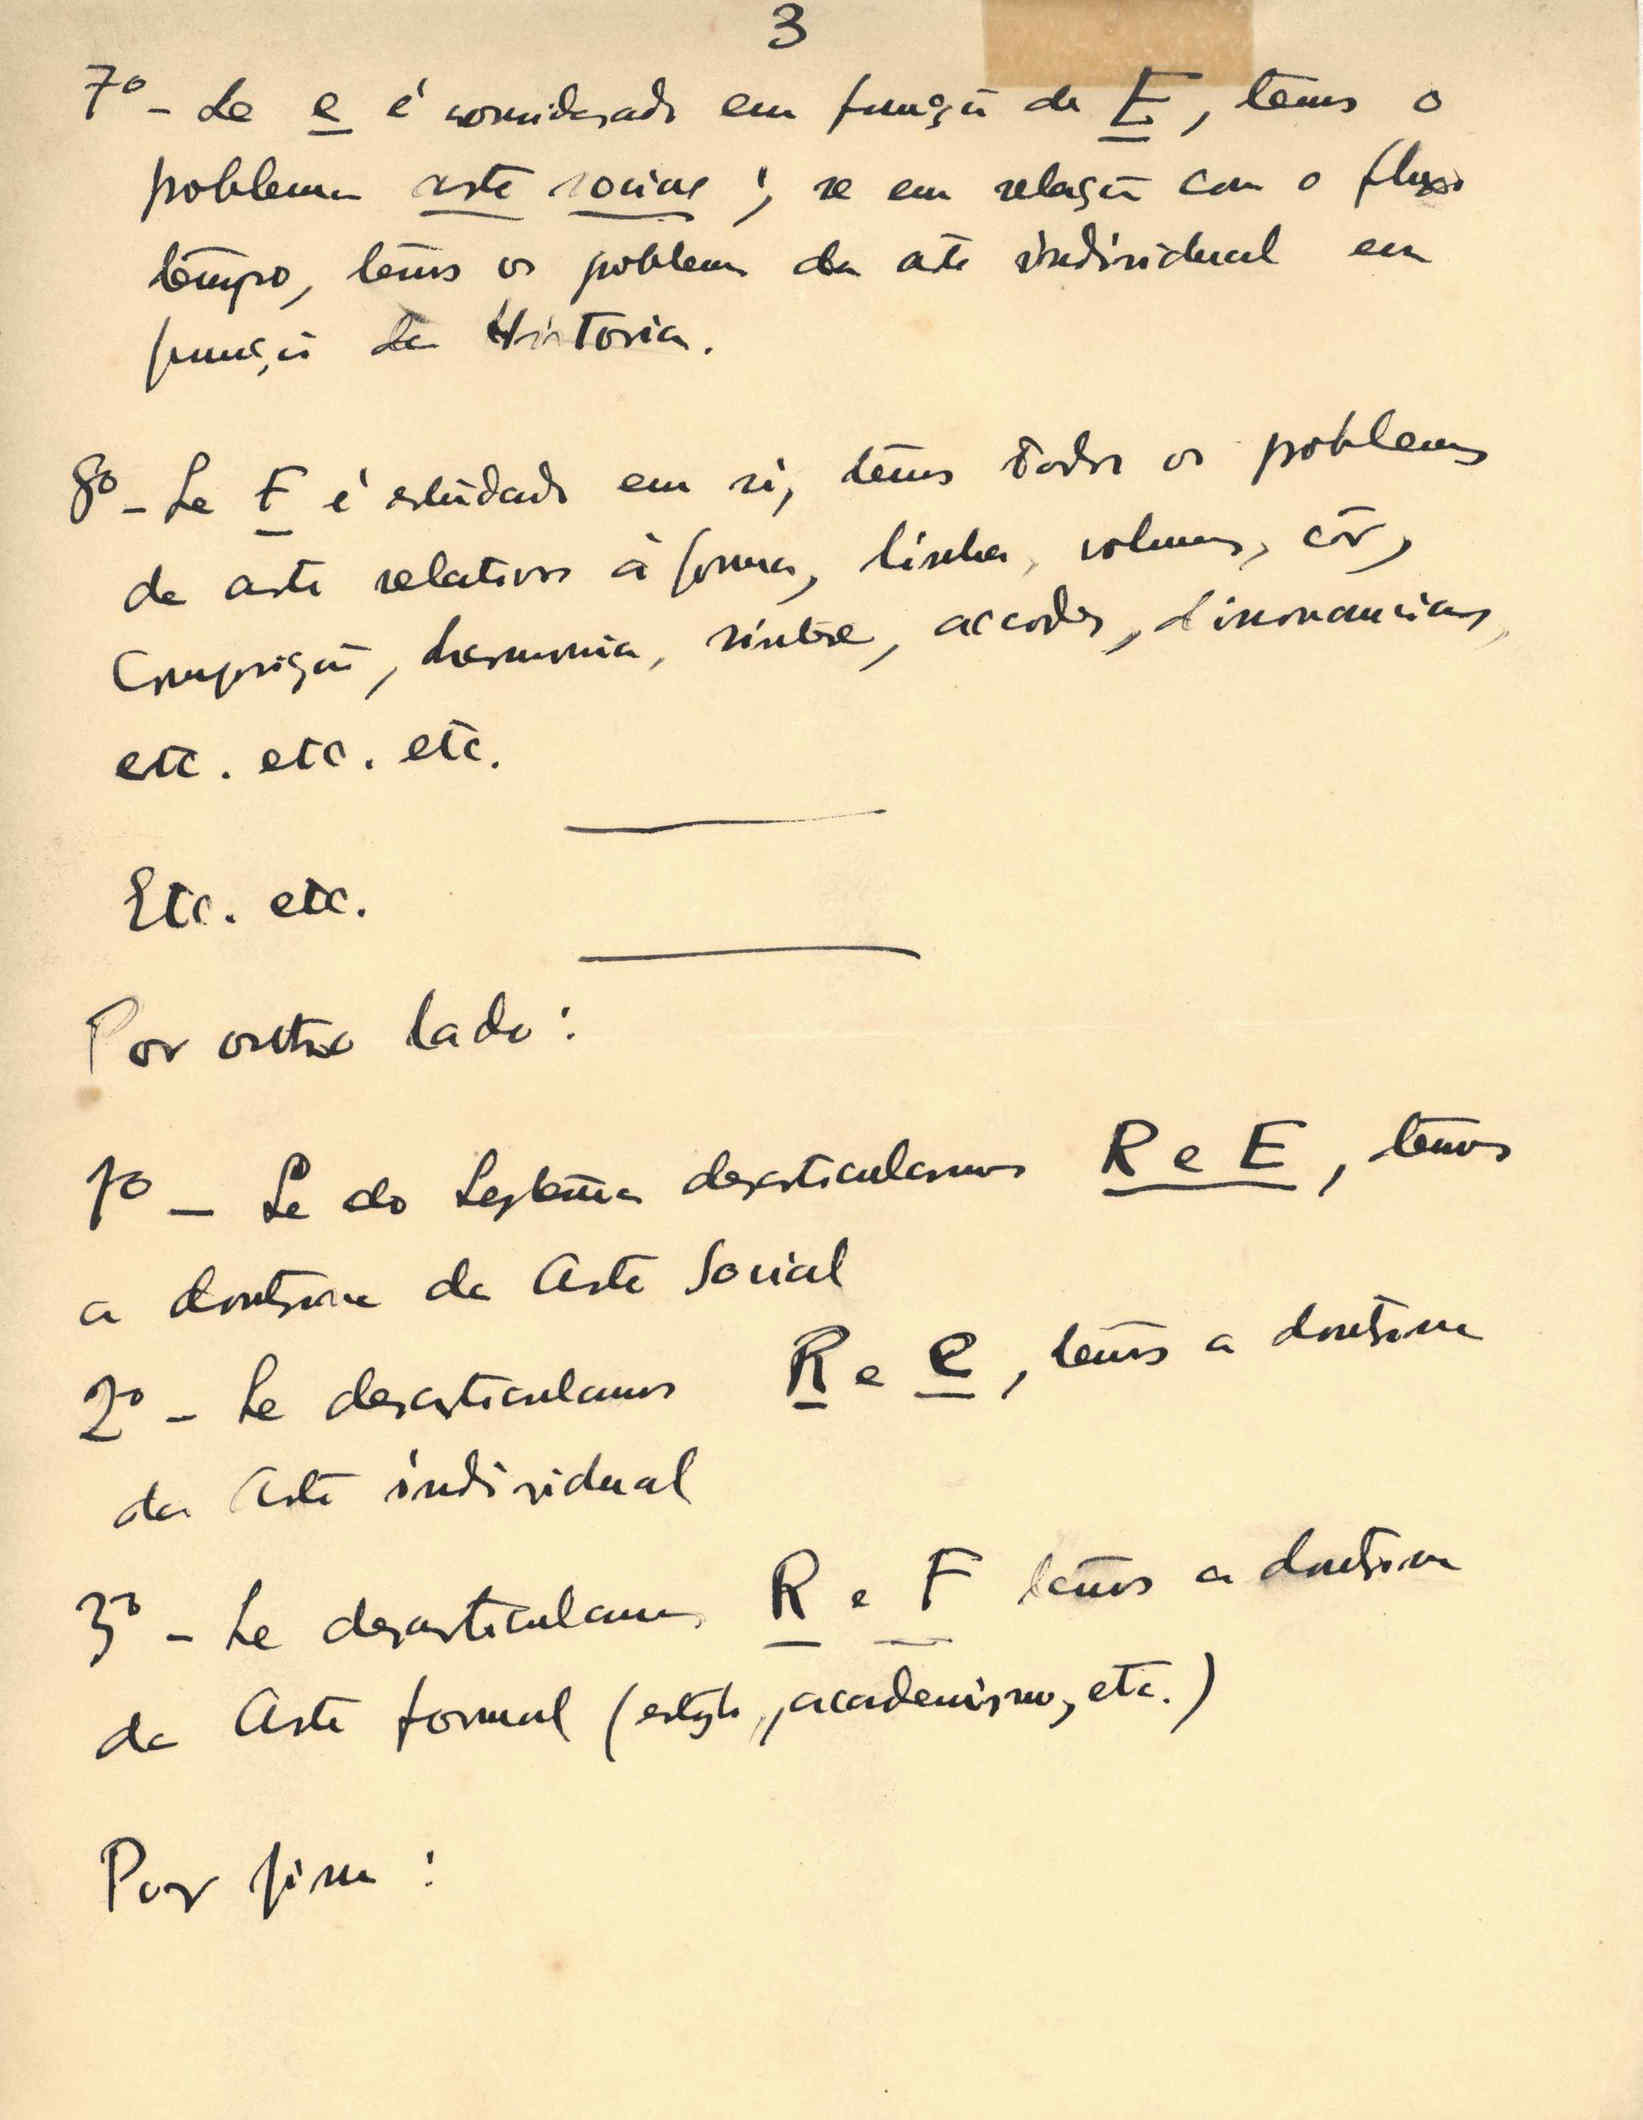 3
7º - Se e é considerado em função de E, temos o
problema arte social; se em relação com o fluxo
tempo, temos os problemas da arte individual em
função da Historia.
8º - Se F é estudado em si, temos todos os problemas
de arte relativos à forma, linha, volumes, côr,
Composição, harmonia, síntese, accordes, dissonancias,
etc. etc. etc.
Etc. etc.
Por outro lado:
1º - Se do Systema desarticularmos R e E, temos
a doutrina da Arte Social
2º - Se desarticulamos R e e, temos a doutrina
da Arte individual
3º - Se desarticulamos R e F temos a doutrina
da Arte formal (estylo, academismo, etc.)
Por fim: